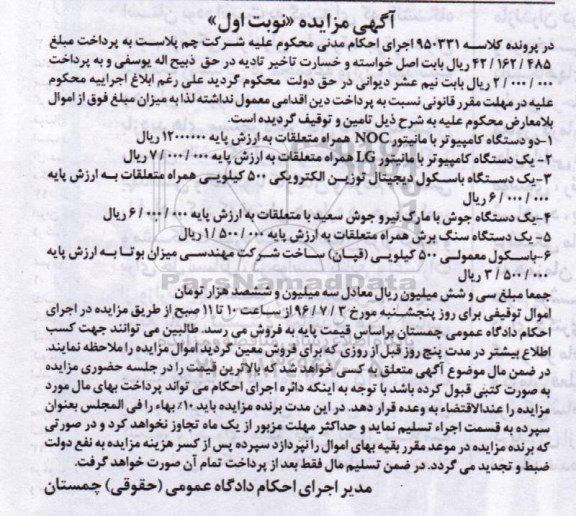 آگهی مزایده «نوبت اول»
در پرونده کلاسه ۹۵۰۳۳۱ اجرای احکام مدنی محکوم علیه شرکت چم پلاست به پرداخت مبلغ
۴۲/۱۶۲/۴۸۵ ریال بابت اصل خواسته و خسارت تاخیر تادیه در حق ذبیح اله یوسفی و به پرداخت
۲/۰۰۰/۰۰۰ ریال بابت نیم عشر دیوانی در حق دولت محکوم گردید علی رغم ابلاغ اجراییه محکوم
علیه در مهلت مقرر قانونی نسبت به پرداخت دین اقدامی معمول نداشته لذا به میزان مبلغ فوق از اموال
بلامعارض محکوم علیه به شرح ذیل تامین و توقیف گردیده است.
۱-دو دستگاه کامپیوتر با مانیتور NOC همراه متعلقات به ارزش پایه ۱۲۰۰۰۰۰۰ ریال
۲- یک دستگاه کامپیوتر با مانیتور LG همراه متعلقات به ارزش پایه ۷/۰۰۰/۰۰۰ ریال
۳-یک دستگاه باسکول دیجیتال توزین الکترویکی ۵۰۰ کیلویی همراه متعلقات به ارزش پایه
۶/۰۰۰/۰۰۰ ریال
۴-یک دستگاه جوش با مارک نیرو جوش سعید با متعلقات به ارزش پایه ۶/۰۰۰/۰۰۰ ریال
۵-یک دستگاه سنگ برش همراه متعلقات به ارزش پایه ۱/۵۰۰/۰۰۰ ریال
۶-باسکول معمولی ۵۰۰ کیلویی (قپان) ساخت شرکت مهندسی میزان یوتا به ارزش پایه
۳/۵۰۰/۰۰۰ ریال
جمعا مبلغ سی و شش میلیون ریال معادل سه میلیون و ششصد هزار تومان
اموال توقیفی برای روز پنجشنبه مورخ ۹۶/۷/۳ از ساعت ۱۰ تا ۱۱ صبح از طریق مزایده در اجرای
احکام دادگاه عمومی چمستان براساس قیمت پایه به فروش می رسد. طالبین می توانند جهت کسب
اطلاع بیشتر در مدت پنج روز قبل از روزی که برای فروش معین گردید اموال مزایده را ملاحظه نمایند.
در ضمن مال موضوع آگهی متعلق به کسی خواهد شد که بالاترین قیمت را در جلسه حضوری مزایده
به صورت کتبی قبول کرده باشد با توجه به اینکه دائره اجرای احکام می تواند پرداخت بهای مال مورد
مزایده را عندالاقتضاء به وعده قرار دهد. در این مدت برنده مزایده باید ۱۰٪ بهاء را فی المجلس بعنوان
سپرده به قسمت اجراء تسلیم نماید و حداکثر مهلت مزبور از یک ماه تجاوز نخواهد کرد و در صورتی
که برنده مزایده در موعد مقرر بقیه بهای اموال را نپردازد سپرده پس از کسر هزینه مزایده به نفع دولت
ضبط و تجدید می گردد. در ضمن تسلیم مال فقط بعد از پرداخت تمام آن صورت خواهد گرفت.
مدیر اجرای احکام دادگاه عمومی (حقوقی) چمستان
ParsNamadData